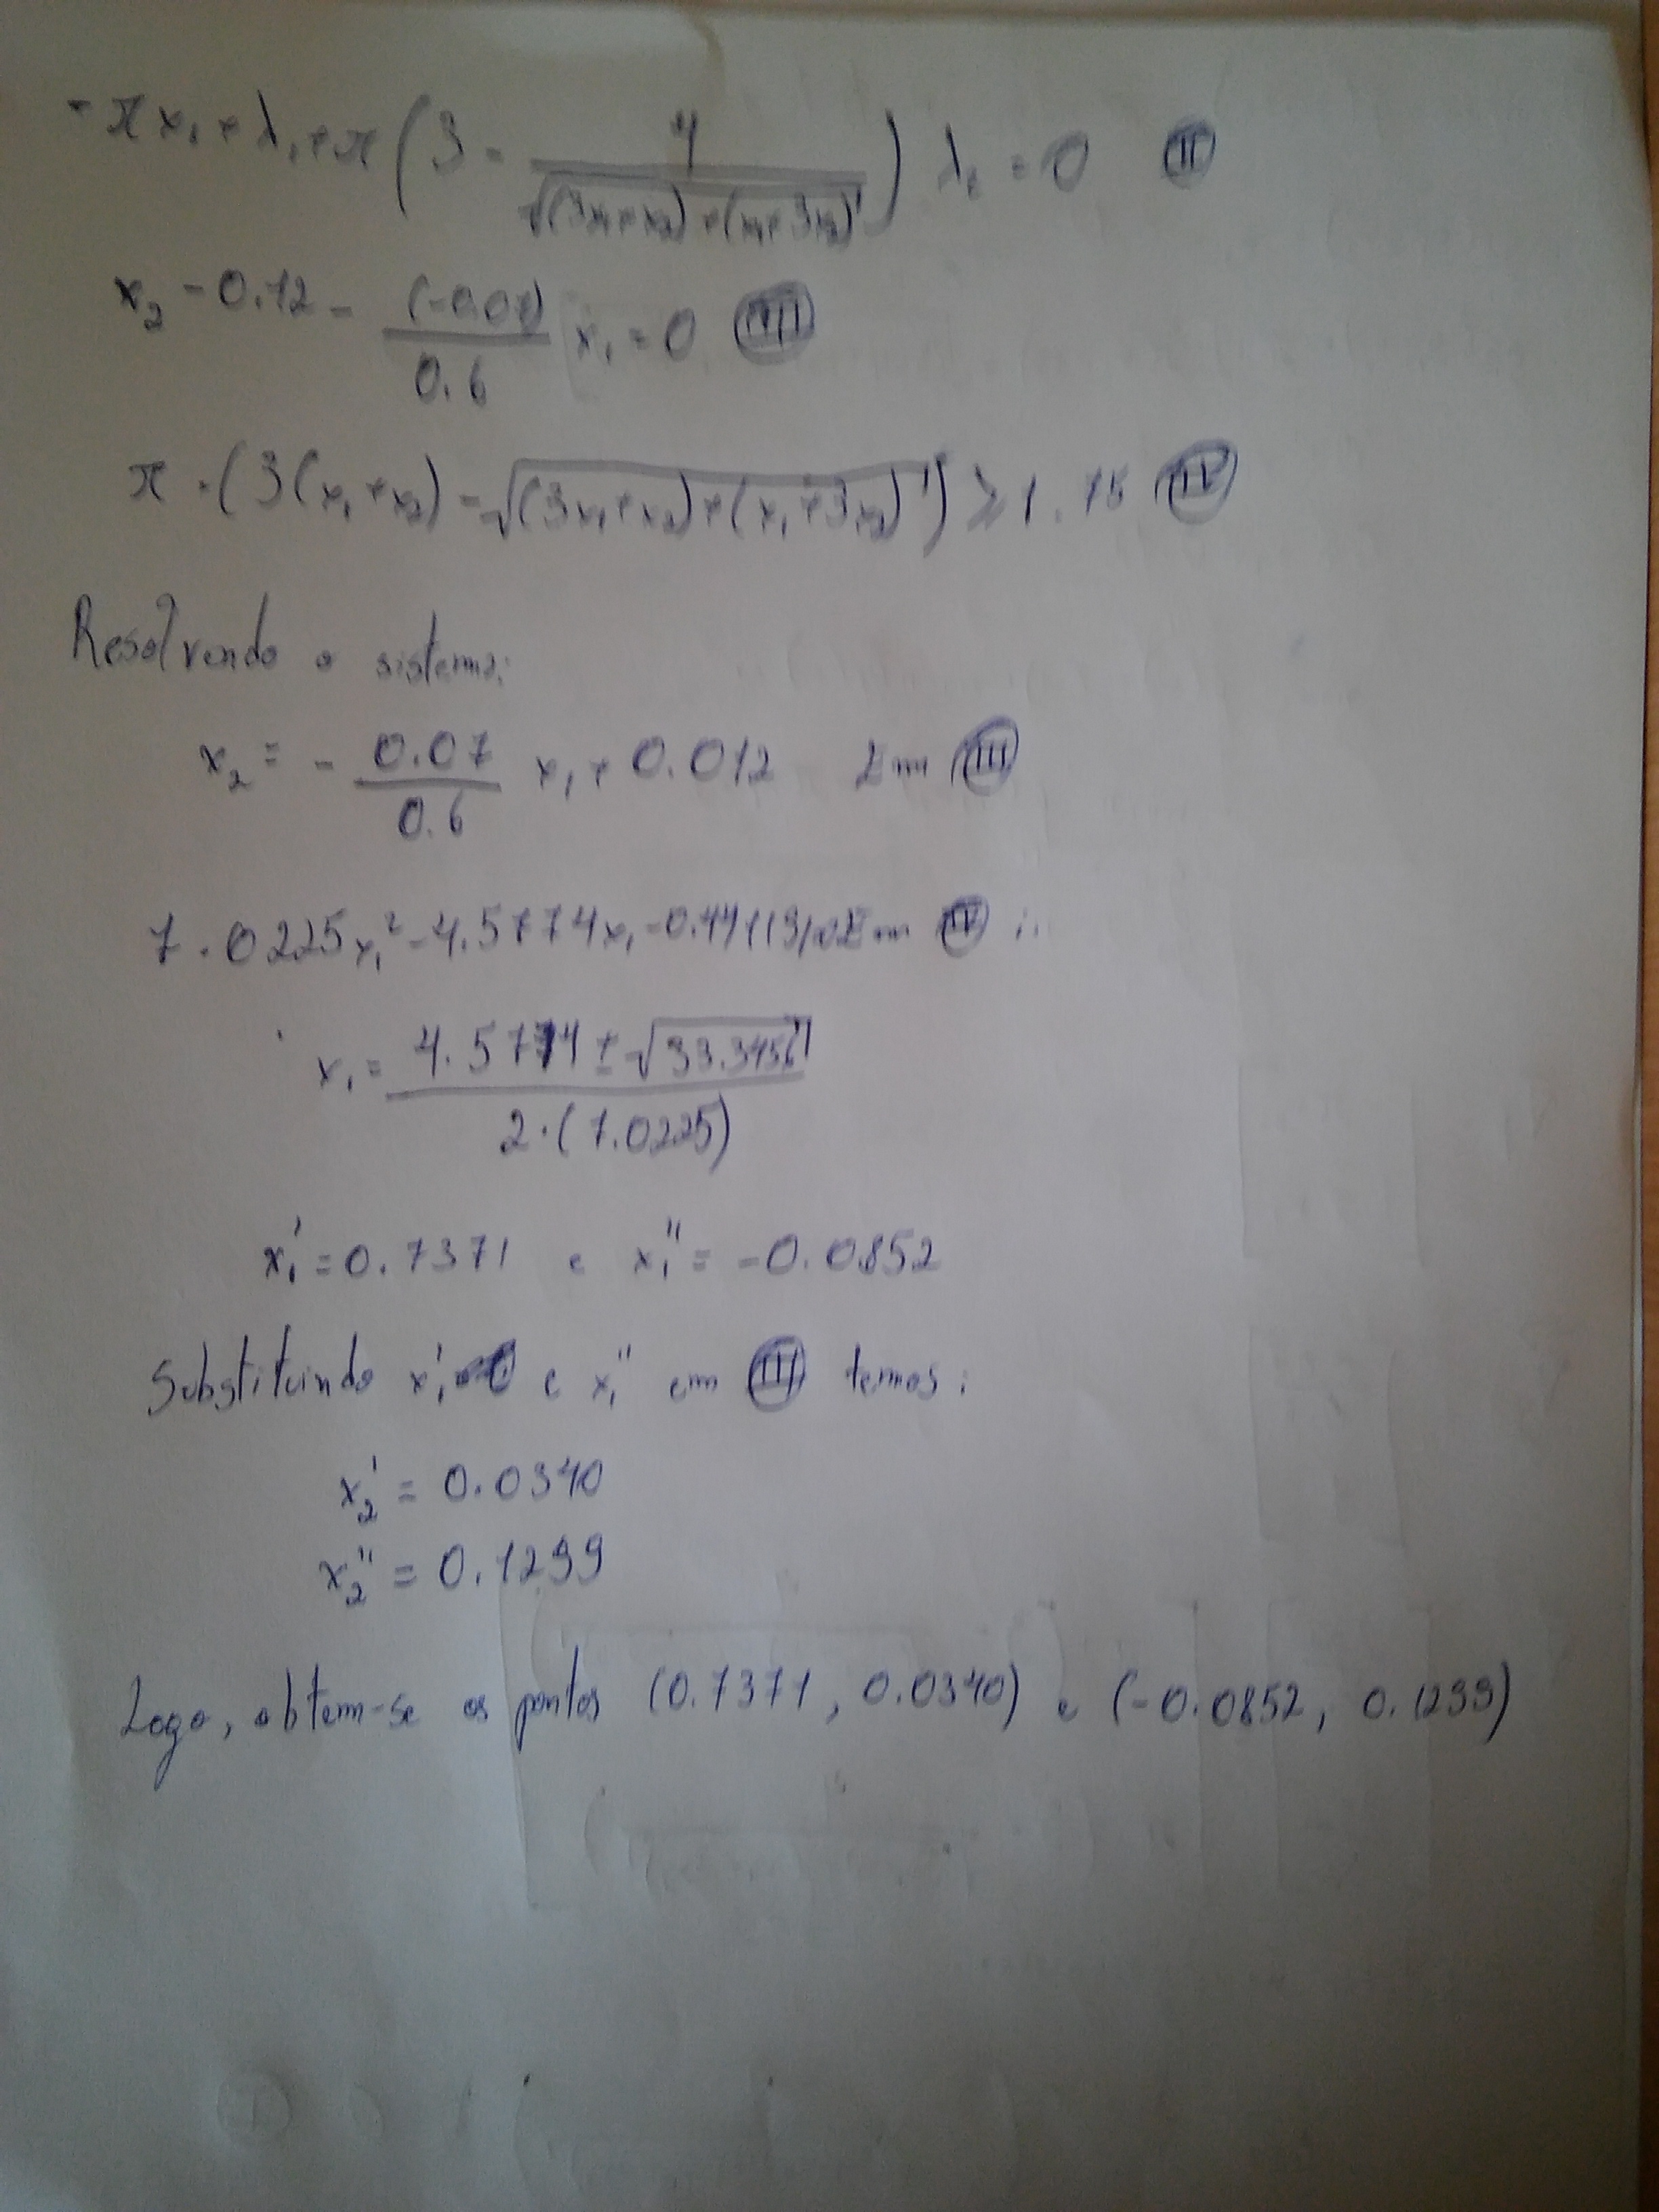 -πx₁+λ₁+π(3-4/√((3x₁+x₂)+(x₁+3x₂)))λ₂=0 (II)
x₂-0.12-(-0.07)/0.6 x₁=0 (III)
π·(3(x₁+x₂)-√((3x₁+x₂)+(x₁+3x₂)))≥1.15 (IV)
Resolvendo o sistema:
x₂=-0.07/0.6 x₁+0.012 Em (III)
7.0225x₁²-4.5774x₁ Em (IV):
x₁=4.5774±√33.3456/2·(7.0225)
x₁'=0.7371 e x₁''=-0.0852
Substituindo x₁' e x₁'' em (III) temos:
x₂'=0.0340
x₂''=0.1299
Logo, obtem-se os pontos (0.7371, 0.0340) e (-0.0852, 0.1299)